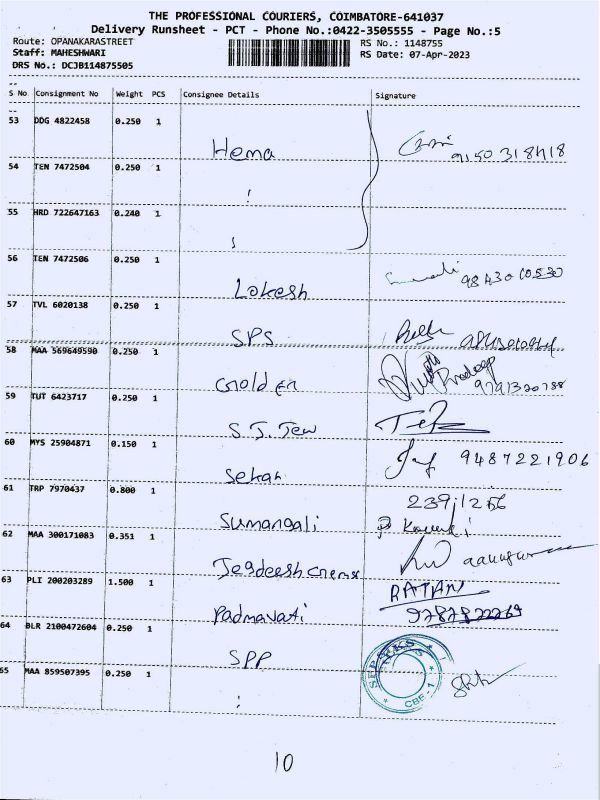 THE PROFESSIONAL COURIERS, COIMBATORE-641037
Delivery Runsheet - PCT - Phone No.:0422-3505555 - Page No.:5
Route: OPANAKARASTREET RS No.: 1148755
Staff: MAHESHWARI RS Date: 07-Apr-2023
DRS No.: DCJB114875505
S No Consignment No Weight PCS Consignee Details Signature
53 DDG 4822458 0.250 1
Hema 9150318418
54 TEN 7472504 0.250 1
55 HRD 722647163 0.240 1
56 TEN 7472506 0.250 1
Lokesh 9843010530
57 TVL 6020138 0.250 1
SPS
58 MAA 569649590 0.250 1
Golden Pradeep
59 TUT 6423717 0.250 1
S.J. Jew
60 MYS 25904871 0.150 1
Sekar 9487221906
61 TRP 7970437 0.800 1
Sumangali 2391256
62 MAA 300171083 0.351 1
63 PLI 200203289 1.500 1
Padmavati RATAN
64 BLR 2100472604 0.250 1
SPP
65 MAA 859507395 0.250 1
CBE-1
10